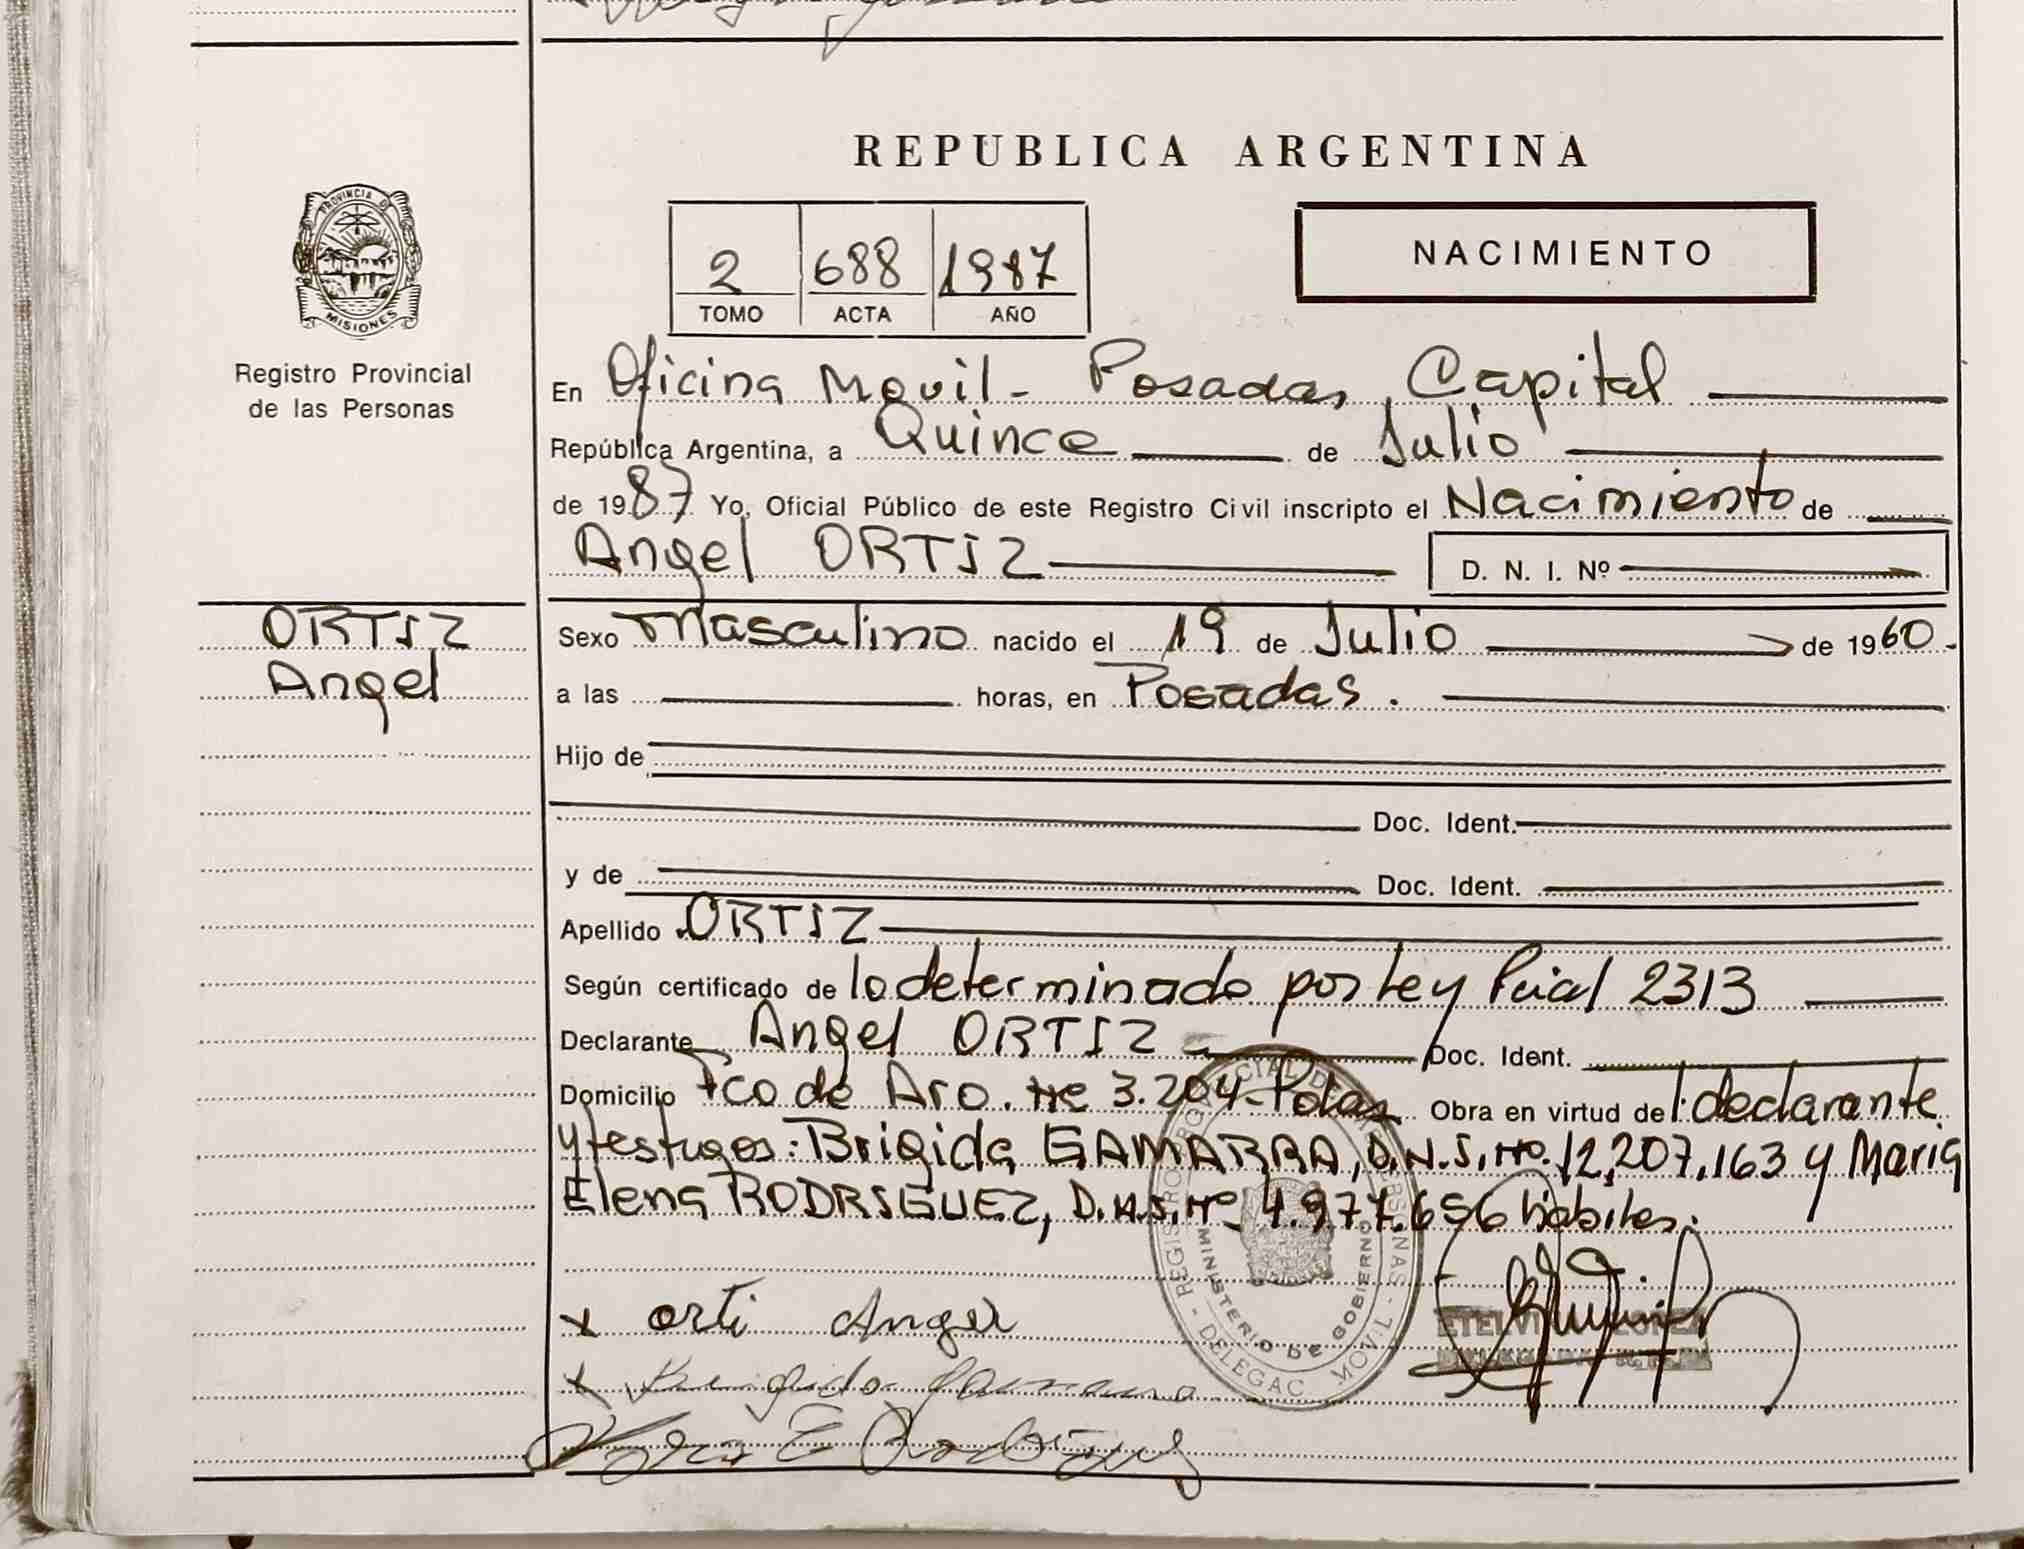 REPUBLICA ARGENTINA
PROVINCIA DE
MISIONES
Registro Provincial
de las Personas
2 688 1987
TOMO ACTA AÑO
NACIMIENTO
En Oficina Movil - Posadas, Capital
República Argentina, a Quince de Julio
de 1987 Yo, Oficial Público de este Registro Civil inscripto el Nacimiento de
Angel ORTIZ D. N. I. Nº
ORTIZ
Angel
Sexo Masculino nacido el 19 de Julio de 1960.
a las horas, en Posadas.
Hijo de
Doc. Ident.
y de Doc. Ident.
Apellido ORTIZ
Según certificado de lo determinado por Ley Pcial 2313
Declarante Angel ORTIZ Doc. Ident.
Domicilio Fco de Aro. Nº 3.204-Pdas Obra en virtud del declarante
y testigos: Brigida GAMARRA, D.N.I. Nº. 12.207.163 y Maria
Elena RODRIGUEZ, D.N.I. Nº 4.977.656 hábiles.
REGISTRO PROVINCIAL DE LAS PERSONAS - DELEGAC MOVIL -
MINISTERIO DE GOBIERNO
x orti Angel
x Brigida Gamarra
E Rodriguez